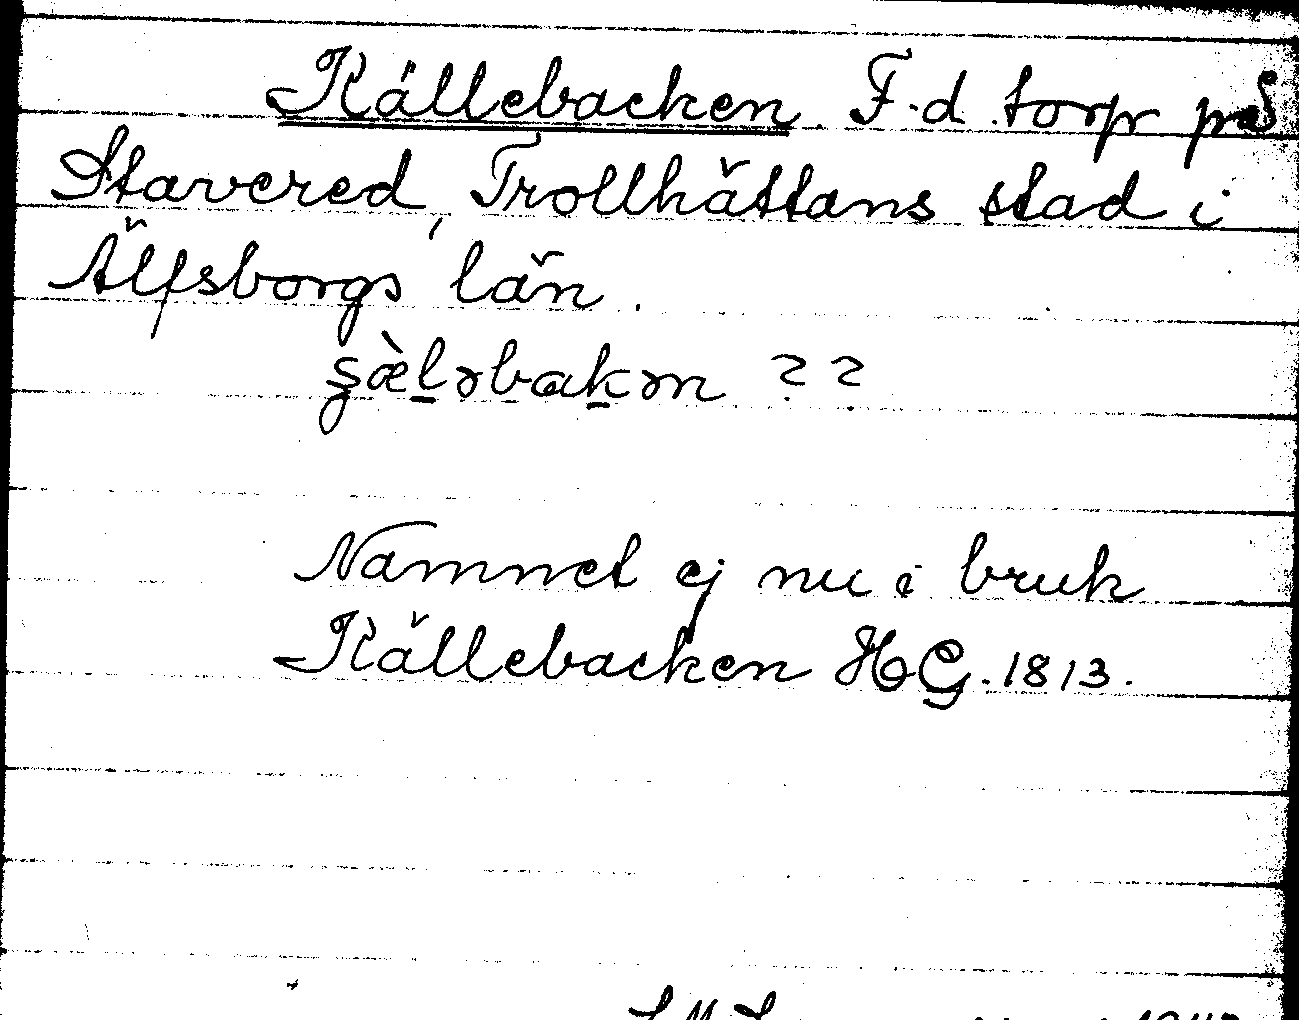 Källebacken F.d. torp på
Stavered, Trollhättans stad i
Älfsborgs län.
Namnet ej nu i bruk
Källebacken HG. 1813.